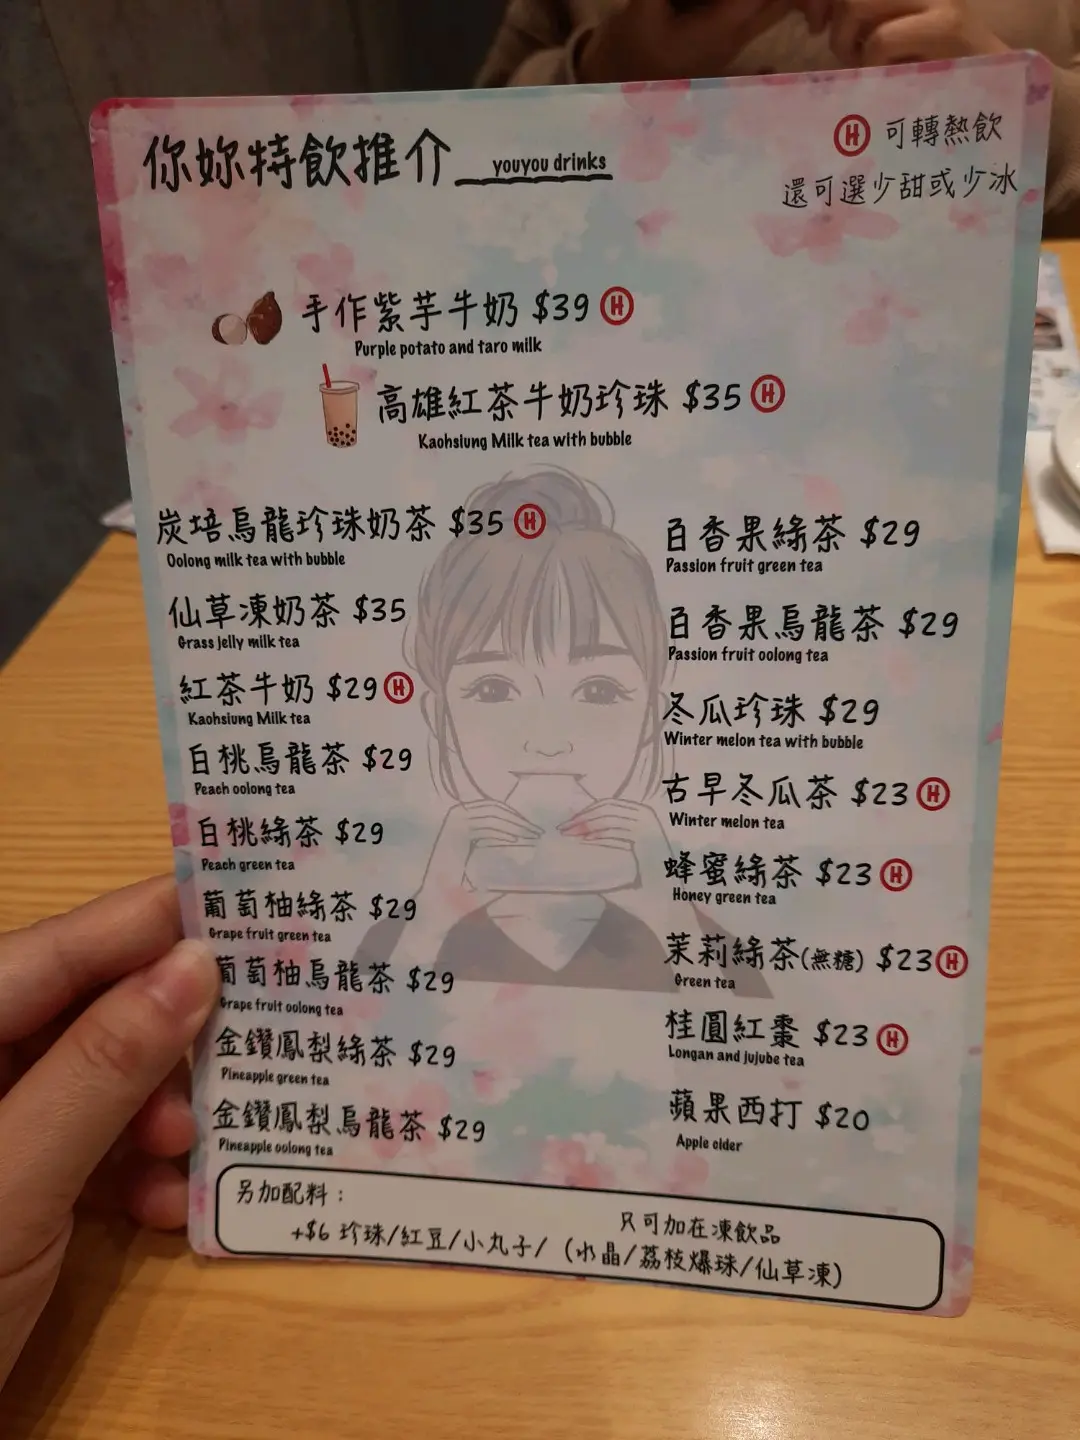 你妳特飲推介 youyou drinks
H 可轉熱飲
還可選少甜或少冰
手作紫芋牛奶 $39 H
Purple potato and taro milk
高雄紅茶牛奶珍珠 $35 H
Kaohsiung Milk tea with bubble
炭培烏龍珍珠奶茶 $35 H
Oolong milk tea with bubble
仙草凍奶茶 $35
Grass jelly milk tea
紅茶牛奶 $29 H
Kaohsiung Milk tea
白桃烏龍茶 $29
Peach oolong tea
白桃綠茶 $29
Peach green tea
葡萄柚綠茶 $29
Grape fruit green tea
葡萄柚烏龍茶 $29
Grape fruit oolong tea
金鑽鳳梨綠茶 $29
Pineapple green tea
金鑽鳳梨烏龍茶 $29
Pineapple oolong tea
百香果綠茶 $29
Passion fruit green tea
百香果烏龍茶 $29
Passion fruit oolong tea
冬瓜珍珠 $29
Winter melon tea with bubble
古早冬瓜茶 $23 H
Winter melon tea
蜂蜜綠茶 $23 H
Honey green tea
茉莉綠茶(無糖) $23 H
Green tea
桂圓紅棗 $23 H
Longan and jujube tea
蘋果西打 $20
Apple cider
另加配料：
只可加在凍飲品
+$6 珍珠/紅豆/小丸子/ (水晶/荔枝爆珠/仙草凍)